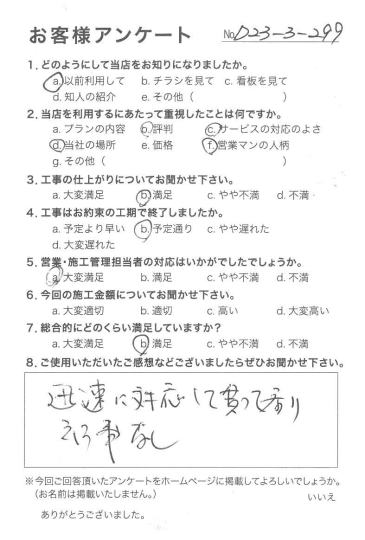 お客様アンケート No. D23-3-299
1. どのようにして当店をお知りになりましたか。
a. 以前利用して b. チラシを見て c. 看板を見て
d. 知人の紹介 e. その他（ ）
2. 当店を利用するにあたって重視したことは何ですか。
a. プランの内容 b. 評判 c. サービスの対応のよさ
d. 当社の場所 e. 価格 f. 営業マンの人柄
g. その他（ ）
3. 工事の仕上がりについてお聞かせ下さい。
a. 大変満足 b. 満足 c. やや不満 d. 不満
4. 工事はお約束の工期で終了しましたか。
a. 予定より早い b. 予定通り c. やや遅れた
d. 大変遅れた
5. 営業・施工管理担当者の対応はいかがでしたでしょうか。
a. 大変満足 b. 満足 c. やや不満 d. 不満
6. 今回の施工金額についてお聞かせ下さい。
a. 大変適切 b. 適切 c. 高い d. 大変高い
7. 総合的にどのくらい満足していますか？
a. 大変満足 b. 満足 c. やや不満 d. 不満
8. ご使用いただいたご感想などございましたらぜひお聞かせ下さい。
迅速に対応して貰って
なし
※今回ご回答頂いたアンケートをホームページに掲載してよろしいでしょうか。
（お名前は掲載いたしません。） いいえ
ありがとうございました。